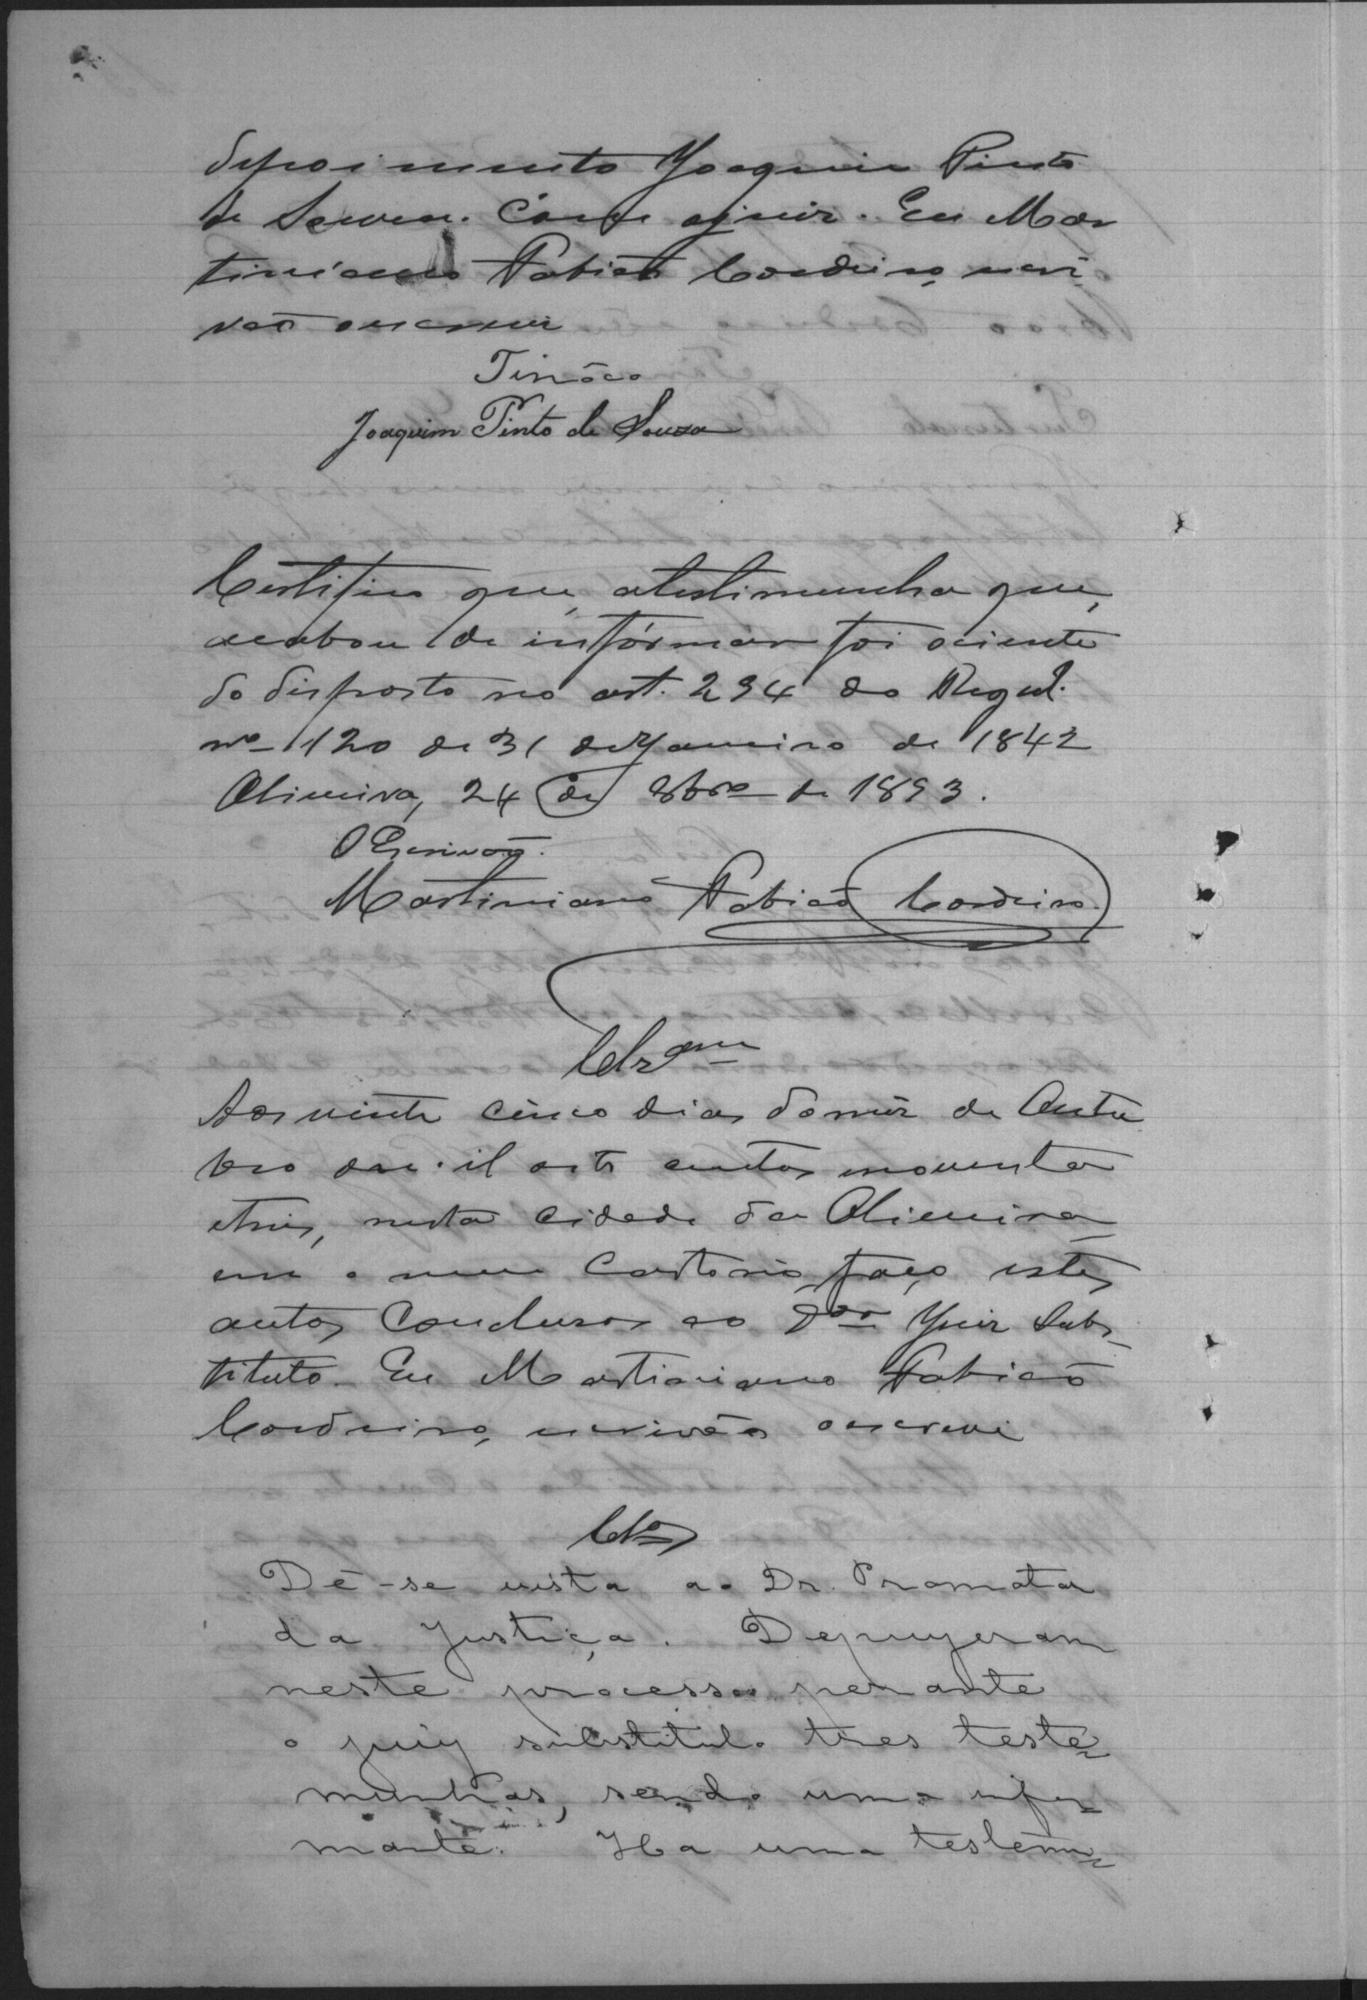 depoimento Joaquim Pinto
de Souza. Com o juiz. Eu Mar
tiniano Fabião Cordeiro, escri
vão o escrevi
Tinôco
Joaquim Pinto de Souza
Certifico que, a testimunha que,
acabou de infórmar foi sciente
do disposto no art. 294 do Regul.
nº 120 de 31 de Janeiro de 1842
Oliveira, 24 de 8bro de 1893.
O Escrivaõ.
Martiniano Fabiaõ Cordeiro
Clzam
Aos vinte cinco dias do mêz de Outu
bro de mil oito centos noventa
e tres, nesta cidade da Oliveira
em o meu Cartorio, faço estes
autos Concluzos ao Dor Juiz Subs
tituto. Eu Martiniano Fabiaõ
Cordeiro, escrivão o escrevi
Clos
Dê-se vista ao Dr. Promotor
da Justiça. Depuzeram
neste processo perante
o juiz substituto tres teste
munhas, sendo uma infor
mante. Ha uma testemu